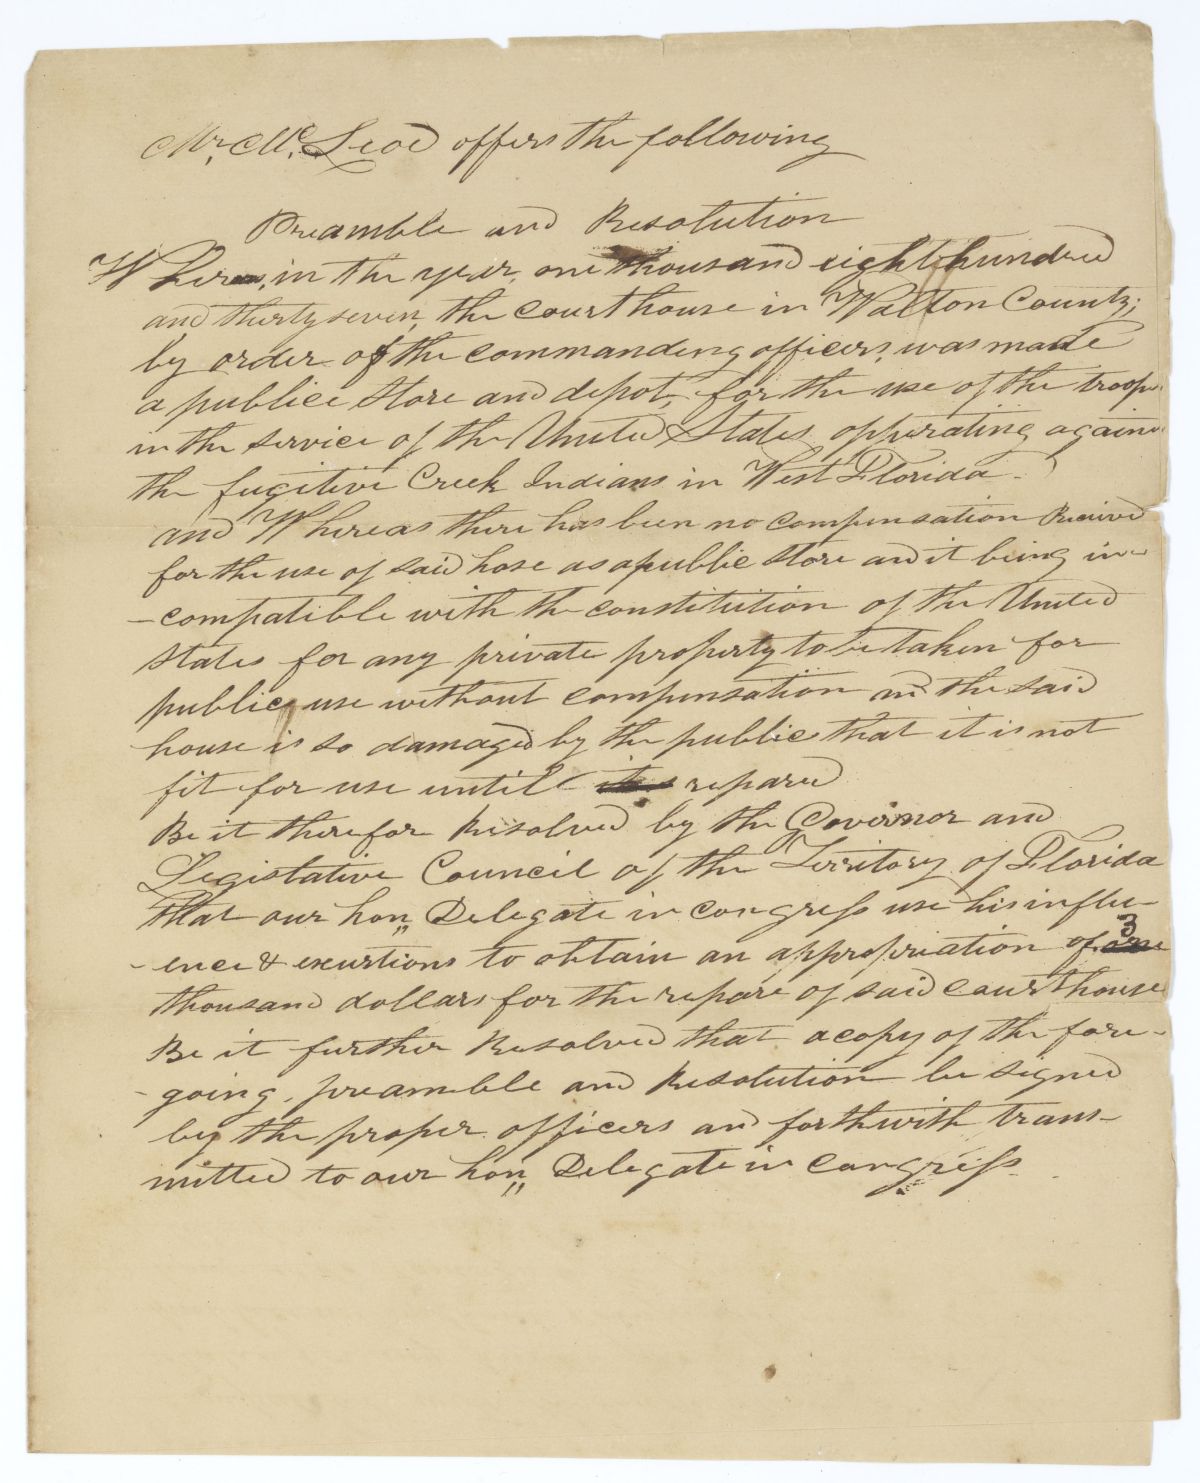 Mr. Mc. Leod offers the following
Preamble and Resolution
Whereas, in the year, one thousand eight hundred
and thirty seven, the court house in Walton County;
by order of the commanding officers, was made
a publice store and depot, for the use of the troops
in the service of the United States opperating against
the fugitive Creek Indians in West Florida.
and Whereas there has been no compensation Received
for the use of said hose as a public store and it being in-
-compatible with the constitution of the United
States for any private property to be taken for
public use without compensation and the said
house is so damaged by the public that it is not
fit for use until repared
Be it therefor Resolved by the Governor and
Legistative Council of the Territory of Florida
that our hon,, Delegate in congress use his influ-
-ence & exurtions to obtain an appropriation of 3
thousand dollars for the repare of said court house
Be it further Resolved that a copy of the fore-
-going, preamble and Resolution be signed
by the proper officers and forthwith trans-
mitted to our hon,, Delegate in congress